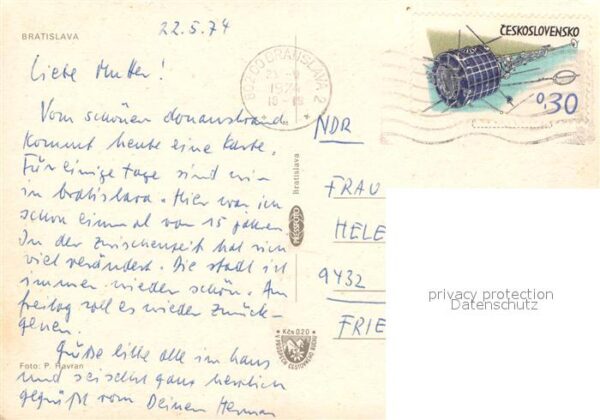 BRATISLAVA
22.5.74
Liebe Mutter!
Vom schönen Donaustrand
kommt heute eine Karte.
Für einige Tage sind wir
in Bratislava. Hier war ich
schon einmal vor 15 Jahren
In der Zwischenzeit hat sich
viel verändert. Die Stadt ist
immer wieder schön. Am
Freitag soll es wieder zurück-
gehen.
Grüße bitte alle im Haus
und sei selbst ganz herzlich
gegrüßt von Deinem Herman
Foto: P. Havran
Bratislava
PRESSFOTO
Kčs 0,20
BRATISLAVA 2
1974
ČESKOSLOVENSKO
0,30
NDR
FRAU
HELE
9432
FRIE
privacy protection
Datenschutz